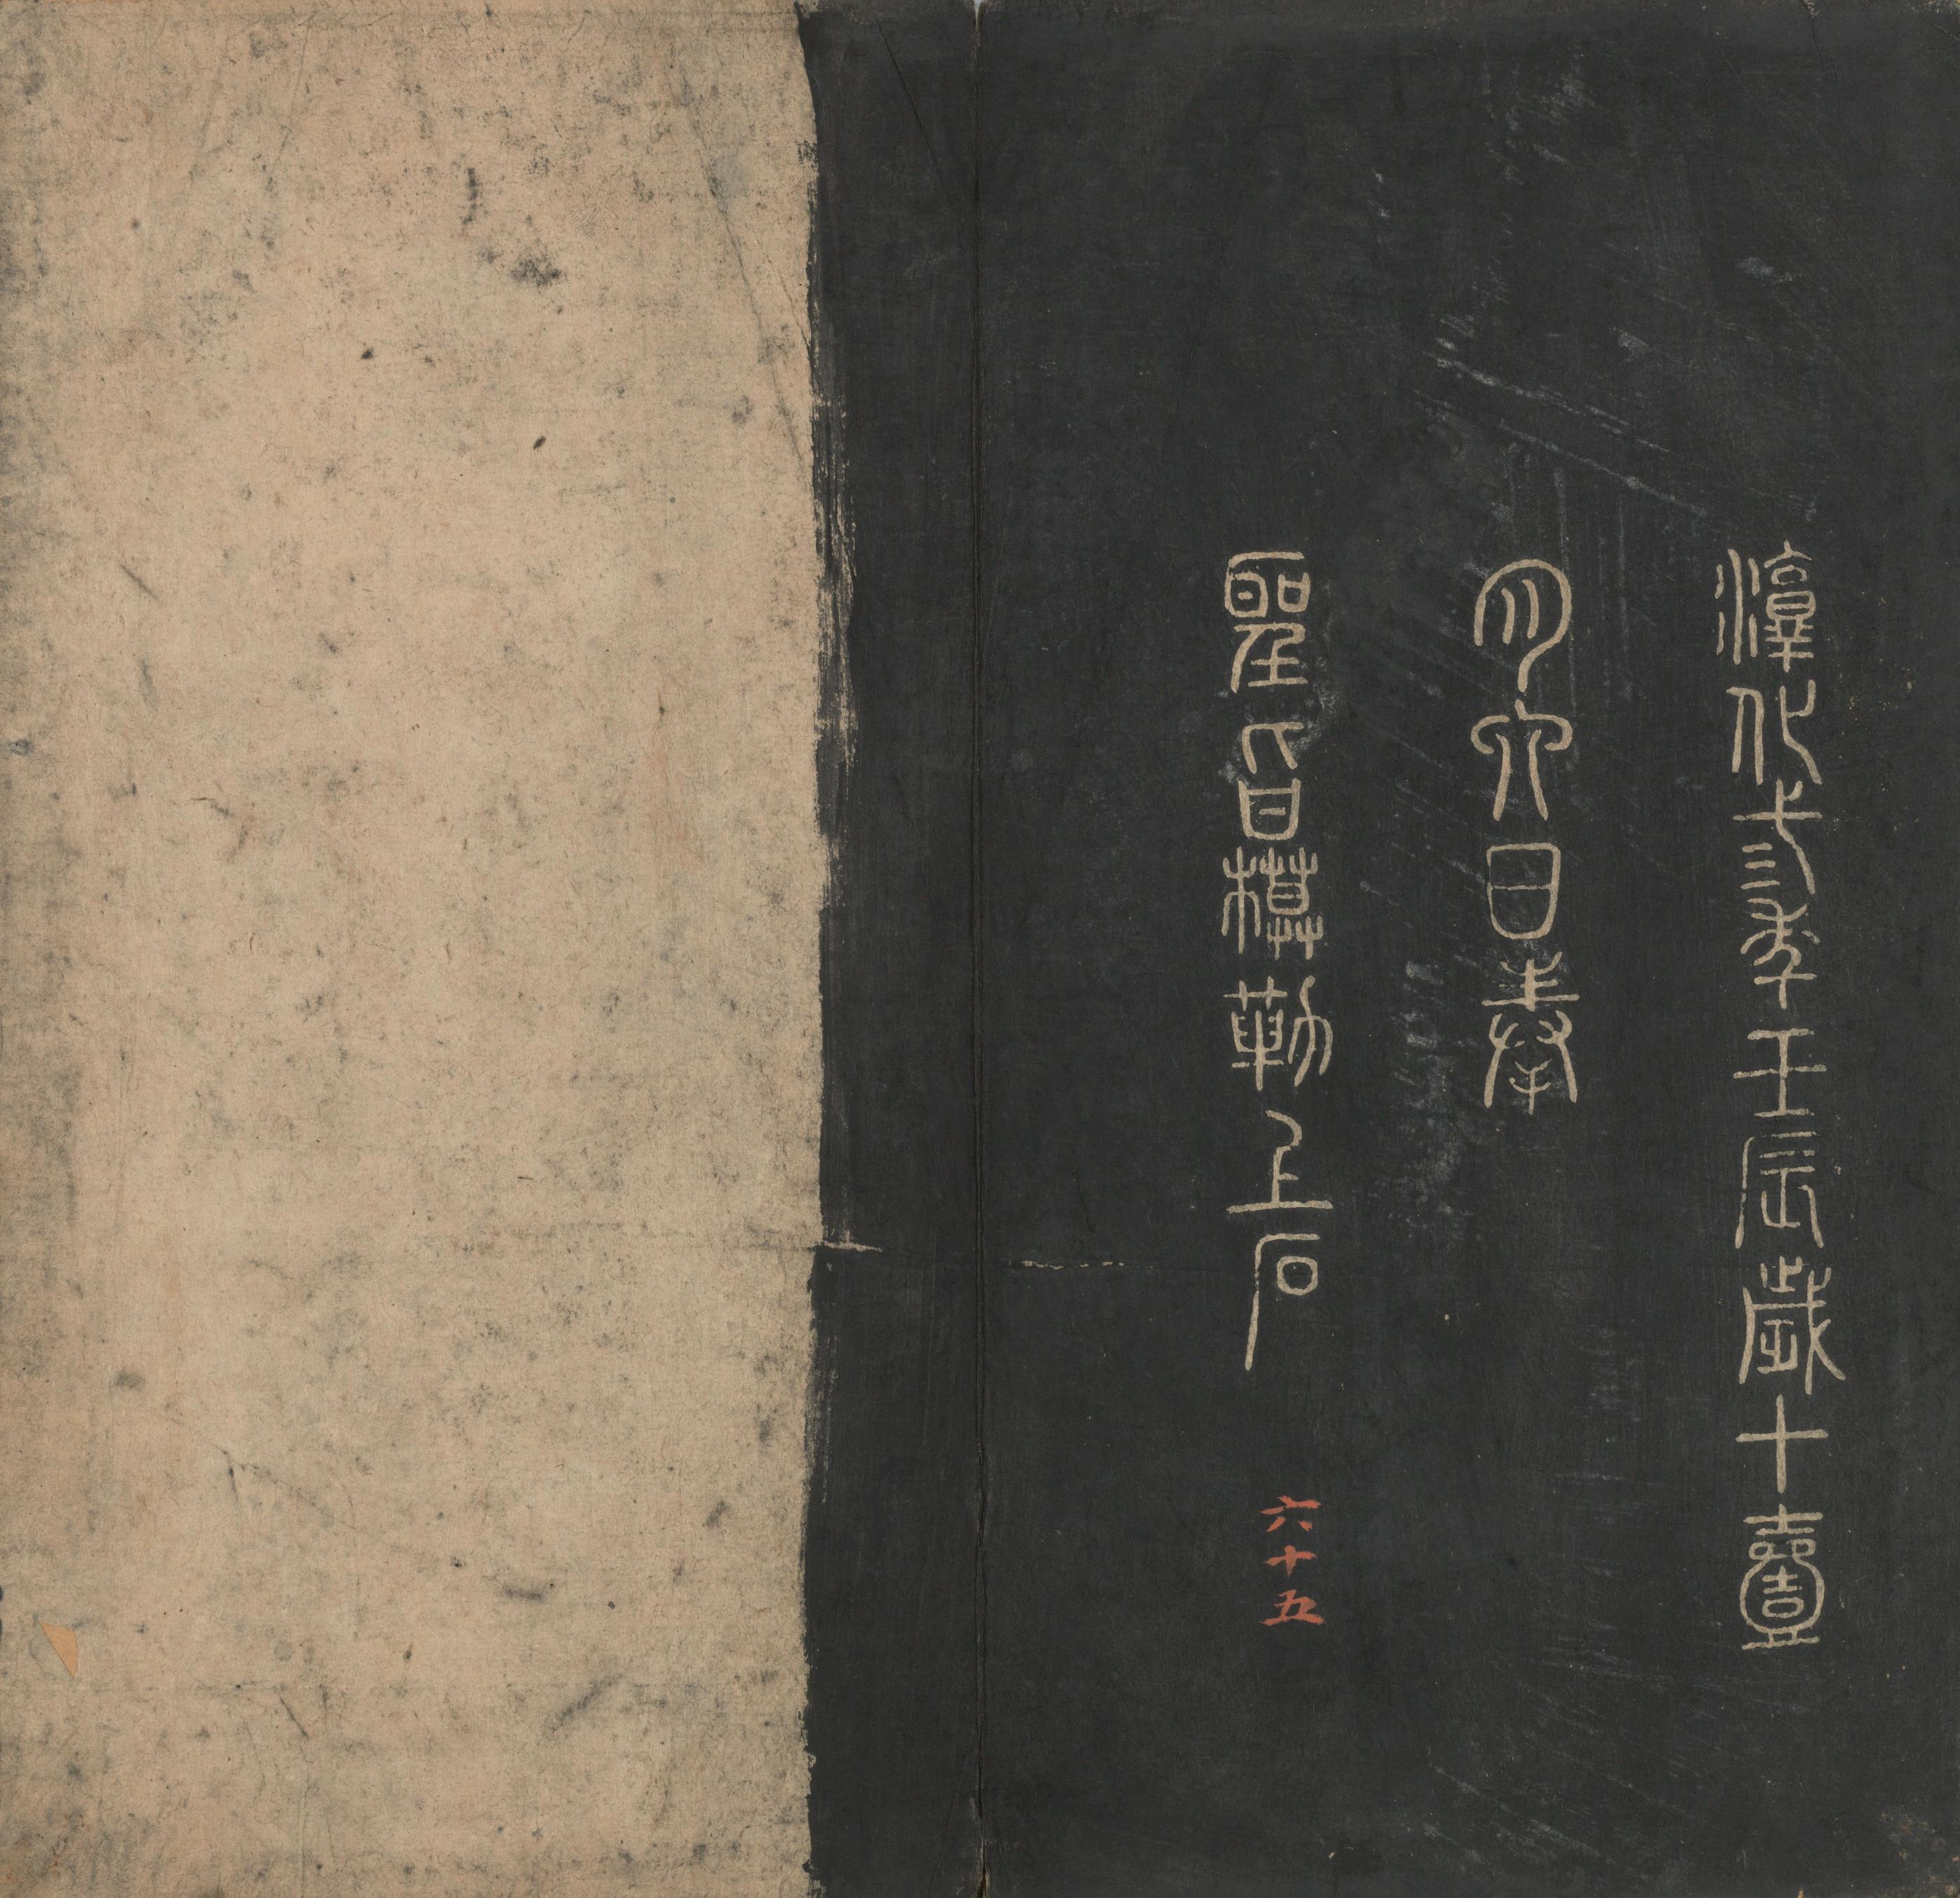 淳化弎年壬辰歲十壹
月六日奉
聖旨模勒上石
六十五